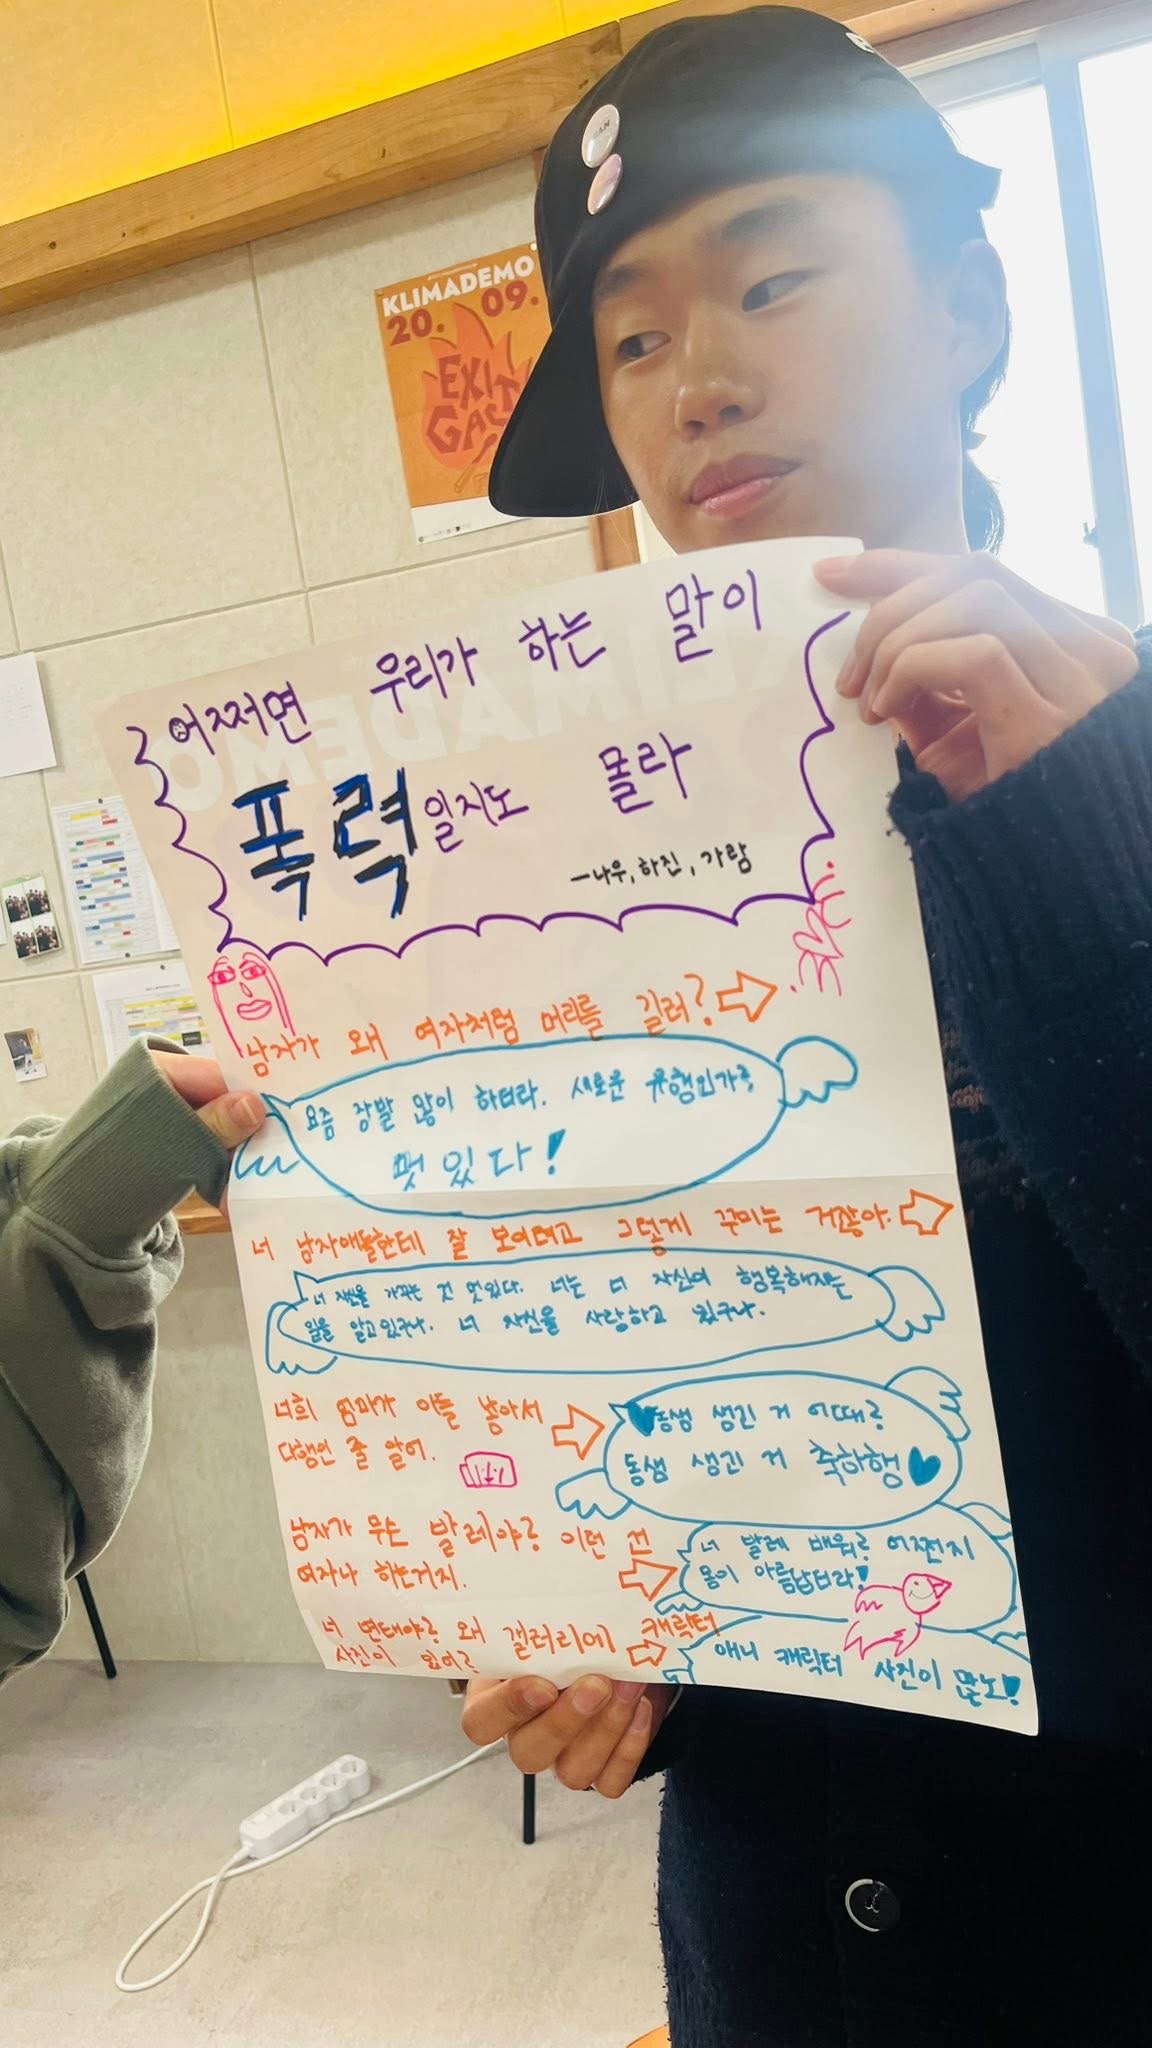 KLIMADEMO
20. 09.
EXIT
어쩌면 우리가 하는 말이
폭력일지도 몰라
-나우, 하진, 가람
남자가 왜 여자처럼 머리를 길러?
요즘 장발 많이 하더라. 새로운 유행인가?
멋있다!
너 남자애들한테 잘 보이려고 그렇게 꾸미는 거잖아.
너 자신을 가꾸는 것 멋있다. 너는 너 자신이 행복해지는
일을 알고 있구나. 너 자신을 사랑하고 있구나.
너희 엄마가 아들 낳아서
다행인 줄 알어.
동생 생긴 거 어때?
동생 생긴 거 축하행
남자가 무슨 발레야? 이런 건
여자나 하는거지.
너 발레 배워? 어쩐지
몸이 아름답더라!
너 변태야? 왜 갤러리에 캐릭터
사진이 있어?
애니 캐릭터 사진이 많노!